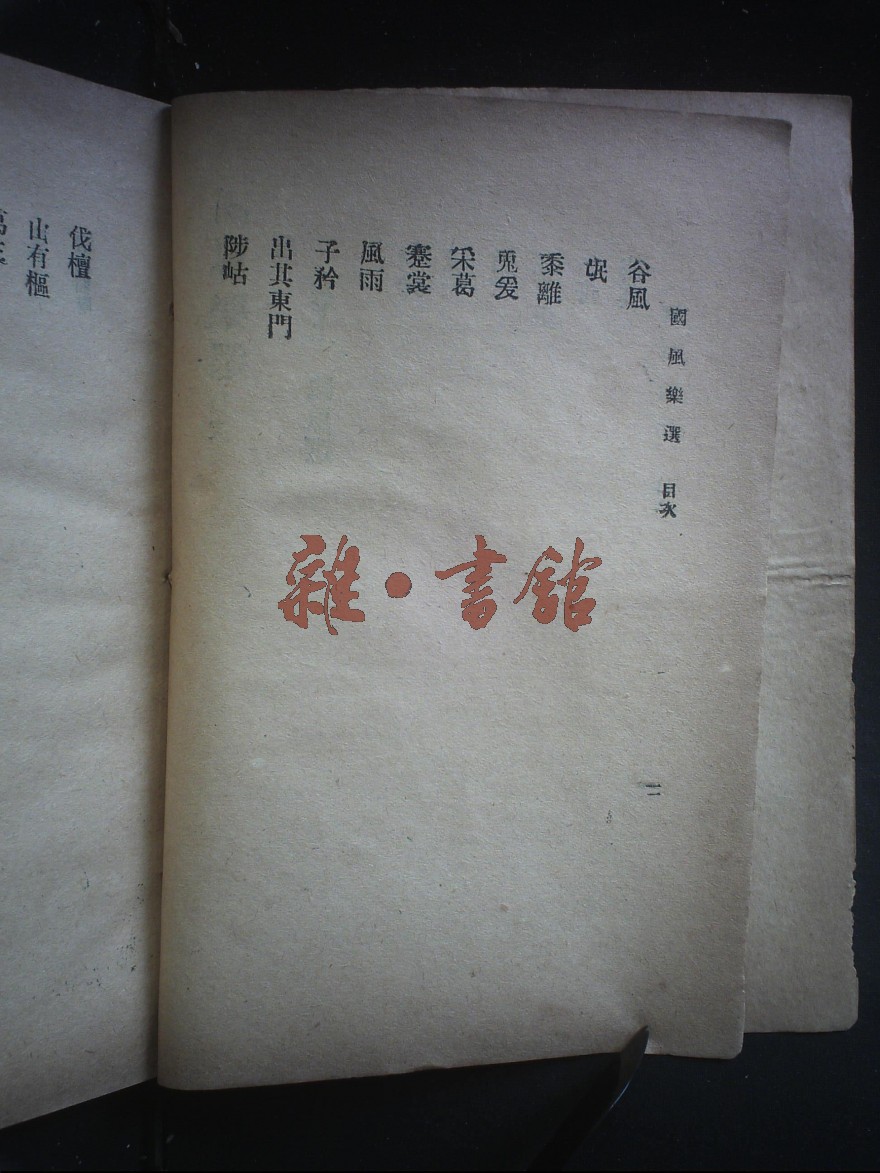 國風樂選 目次
二
谷風
氓
黍離
兎爰
采葛
褰裳
風雨
子衿
出其東門
陟岵
伐檀
山有樞
雜・書館